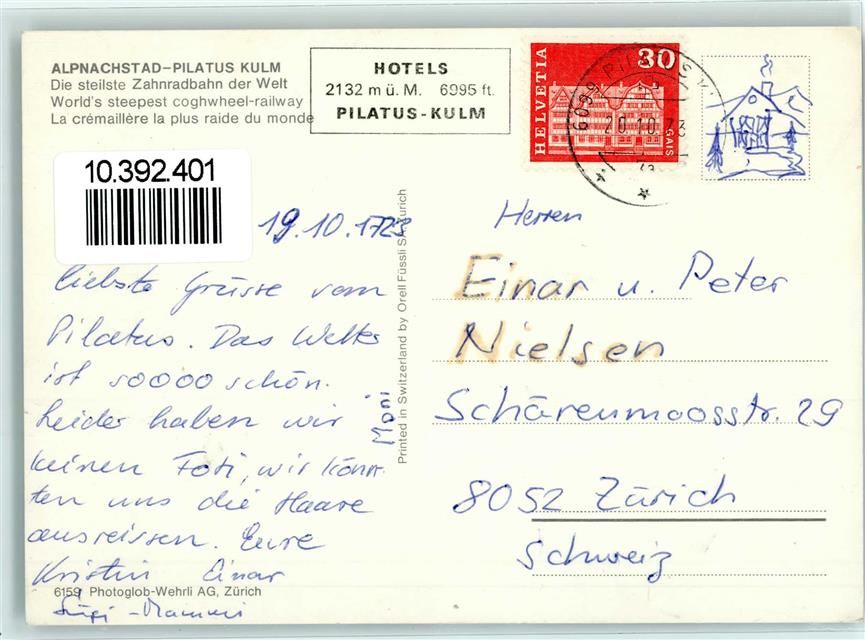 ALPNACHSTAD–PILATUS KULM
Die steilste Zahnradbahn der Welt
World's steepest coghwheel-railway
La crémaillère la plus raide du monde
HOTELS
2132 m ü. M. 6995 ft.
PILATUS-KULM
HELVETIA
30
GAIS
10.392.401
19.10.1723
liebste Grüsse vom
Pilatus. Das Wetter
ist soooo schön.
Leider haben wir
keinen Foti, wir könn-
ten uns die Haare
ausreissen. Eure
Kristin Einar
Moni
Printed in Switzerland by Orell Füssli SA Zurich
Herren
Einar u. Peter
Nielsen
Schärenmoosstr. 29
8052 Zürich
Schweiz
6159 Photoglob-Wehrli AG, Zürich